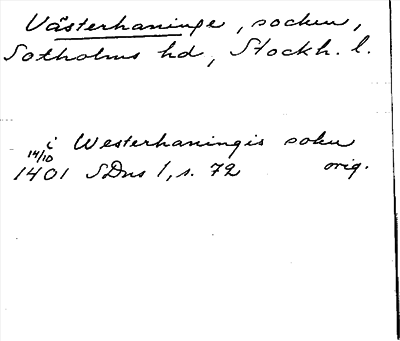 Västerhaninge, socken,
Sotholms hd, Stockh. l.
i Westerhaningis sokn
14/10
1401 SDns 1, s. 72 orig.